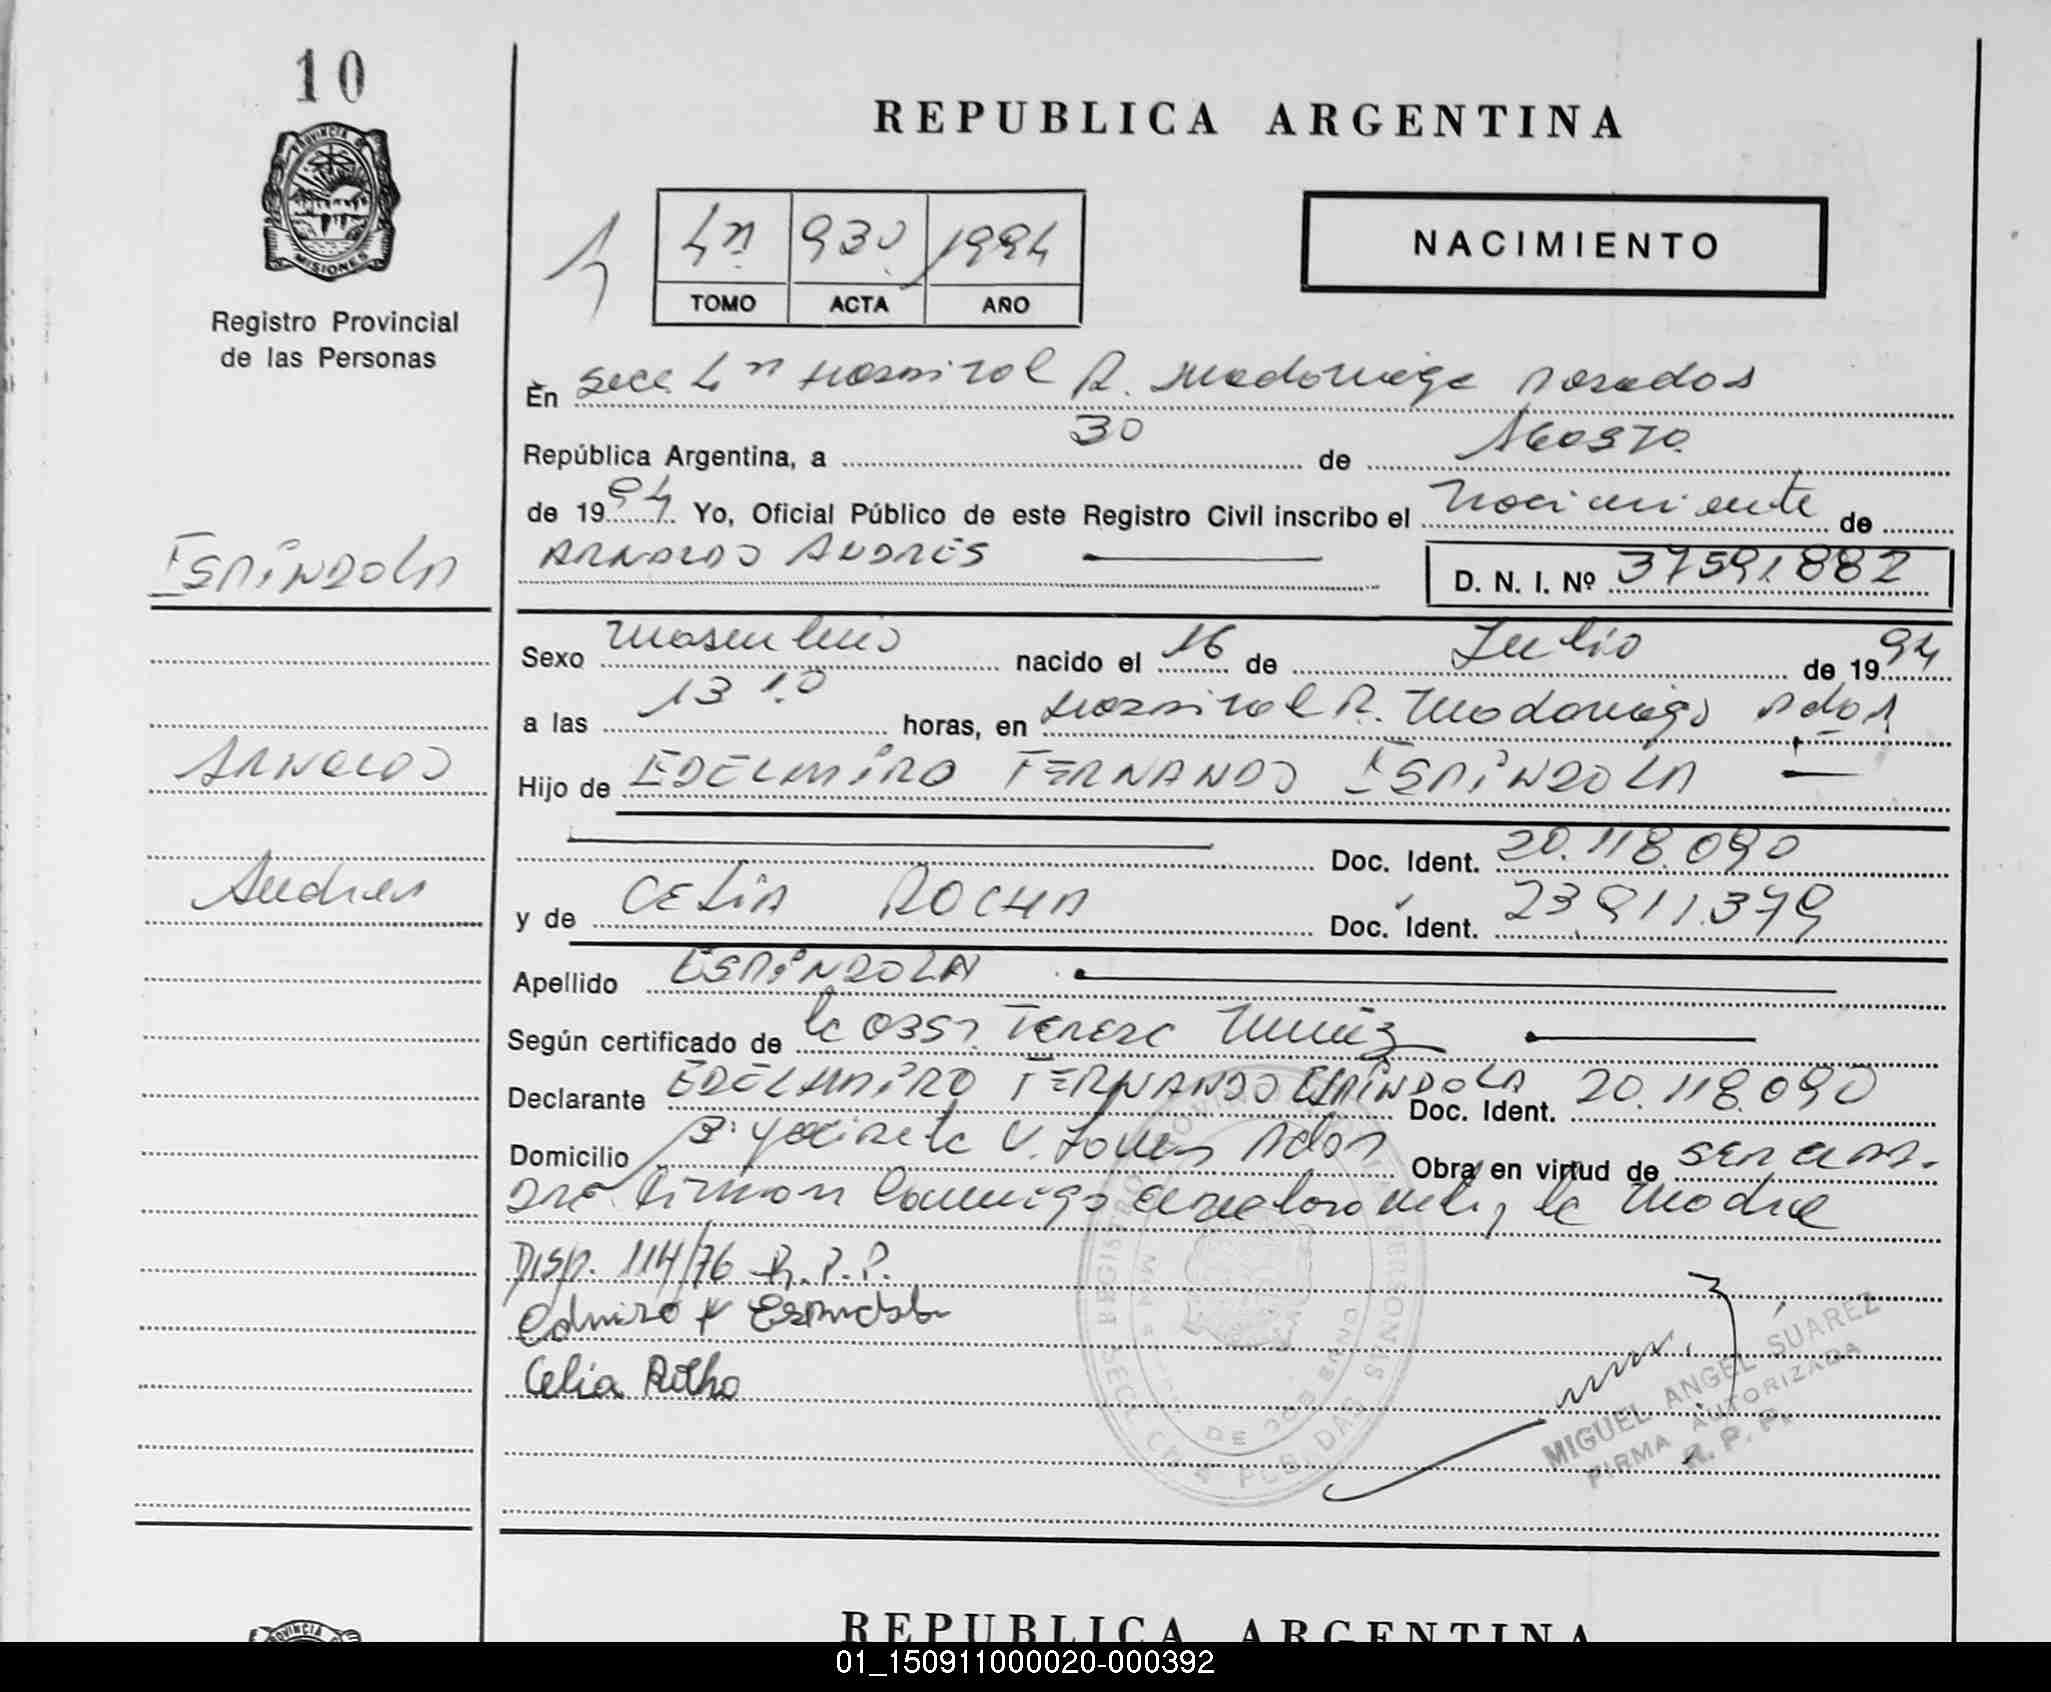 10
REPUBLICA ARGENTINA
PROVINCIA DE
MISIONES
NACIMIENTO
4ª 930 1994
TOMO ACTA AÑO
Registro Provincial
de las Personas
En Secc 4ª Hospital R. Madariaga Posadas
República Argentina, a 30 de Agosto
de 1994 Yo, Oficial Público de este Registro Civil inscribo el Nacimiento de
ESPÍNDOLA
ARNOLDO ANDRÉS
D. N. I. Nº 37591.882
Sexo Masculino nacido el 16 de Julio de 1994
a las 13 10 horas, en Hospital R. Madariaga Pdas
ARNOLDO
Hijo de EDELMIRO FERNANDO ESPÍNDOLA
Doc. Ident. 20.118.090
Andres
y de CELIA ROCHA Doc. Ident. 23.911.379
Apellido ESPÍNDOLA
Según certificado de la Obst. Teresa Muñiz
Declarante EDELMIRO FERNANDO ESPÍNDOLA Doc. Ident. 20.118.090
Domicilio Bº Yacireta Pdas Obra en virtud de ser el
Firman Conmigo el y la Madre
Disp. 114/76 R.P.P.
Celia Rocha
MIGUEL ANGEL SUAREZ
FIRMA AUTORIZADA
R. P. P.
REPUBLICA ARGENTINA
01_150911000020-000392